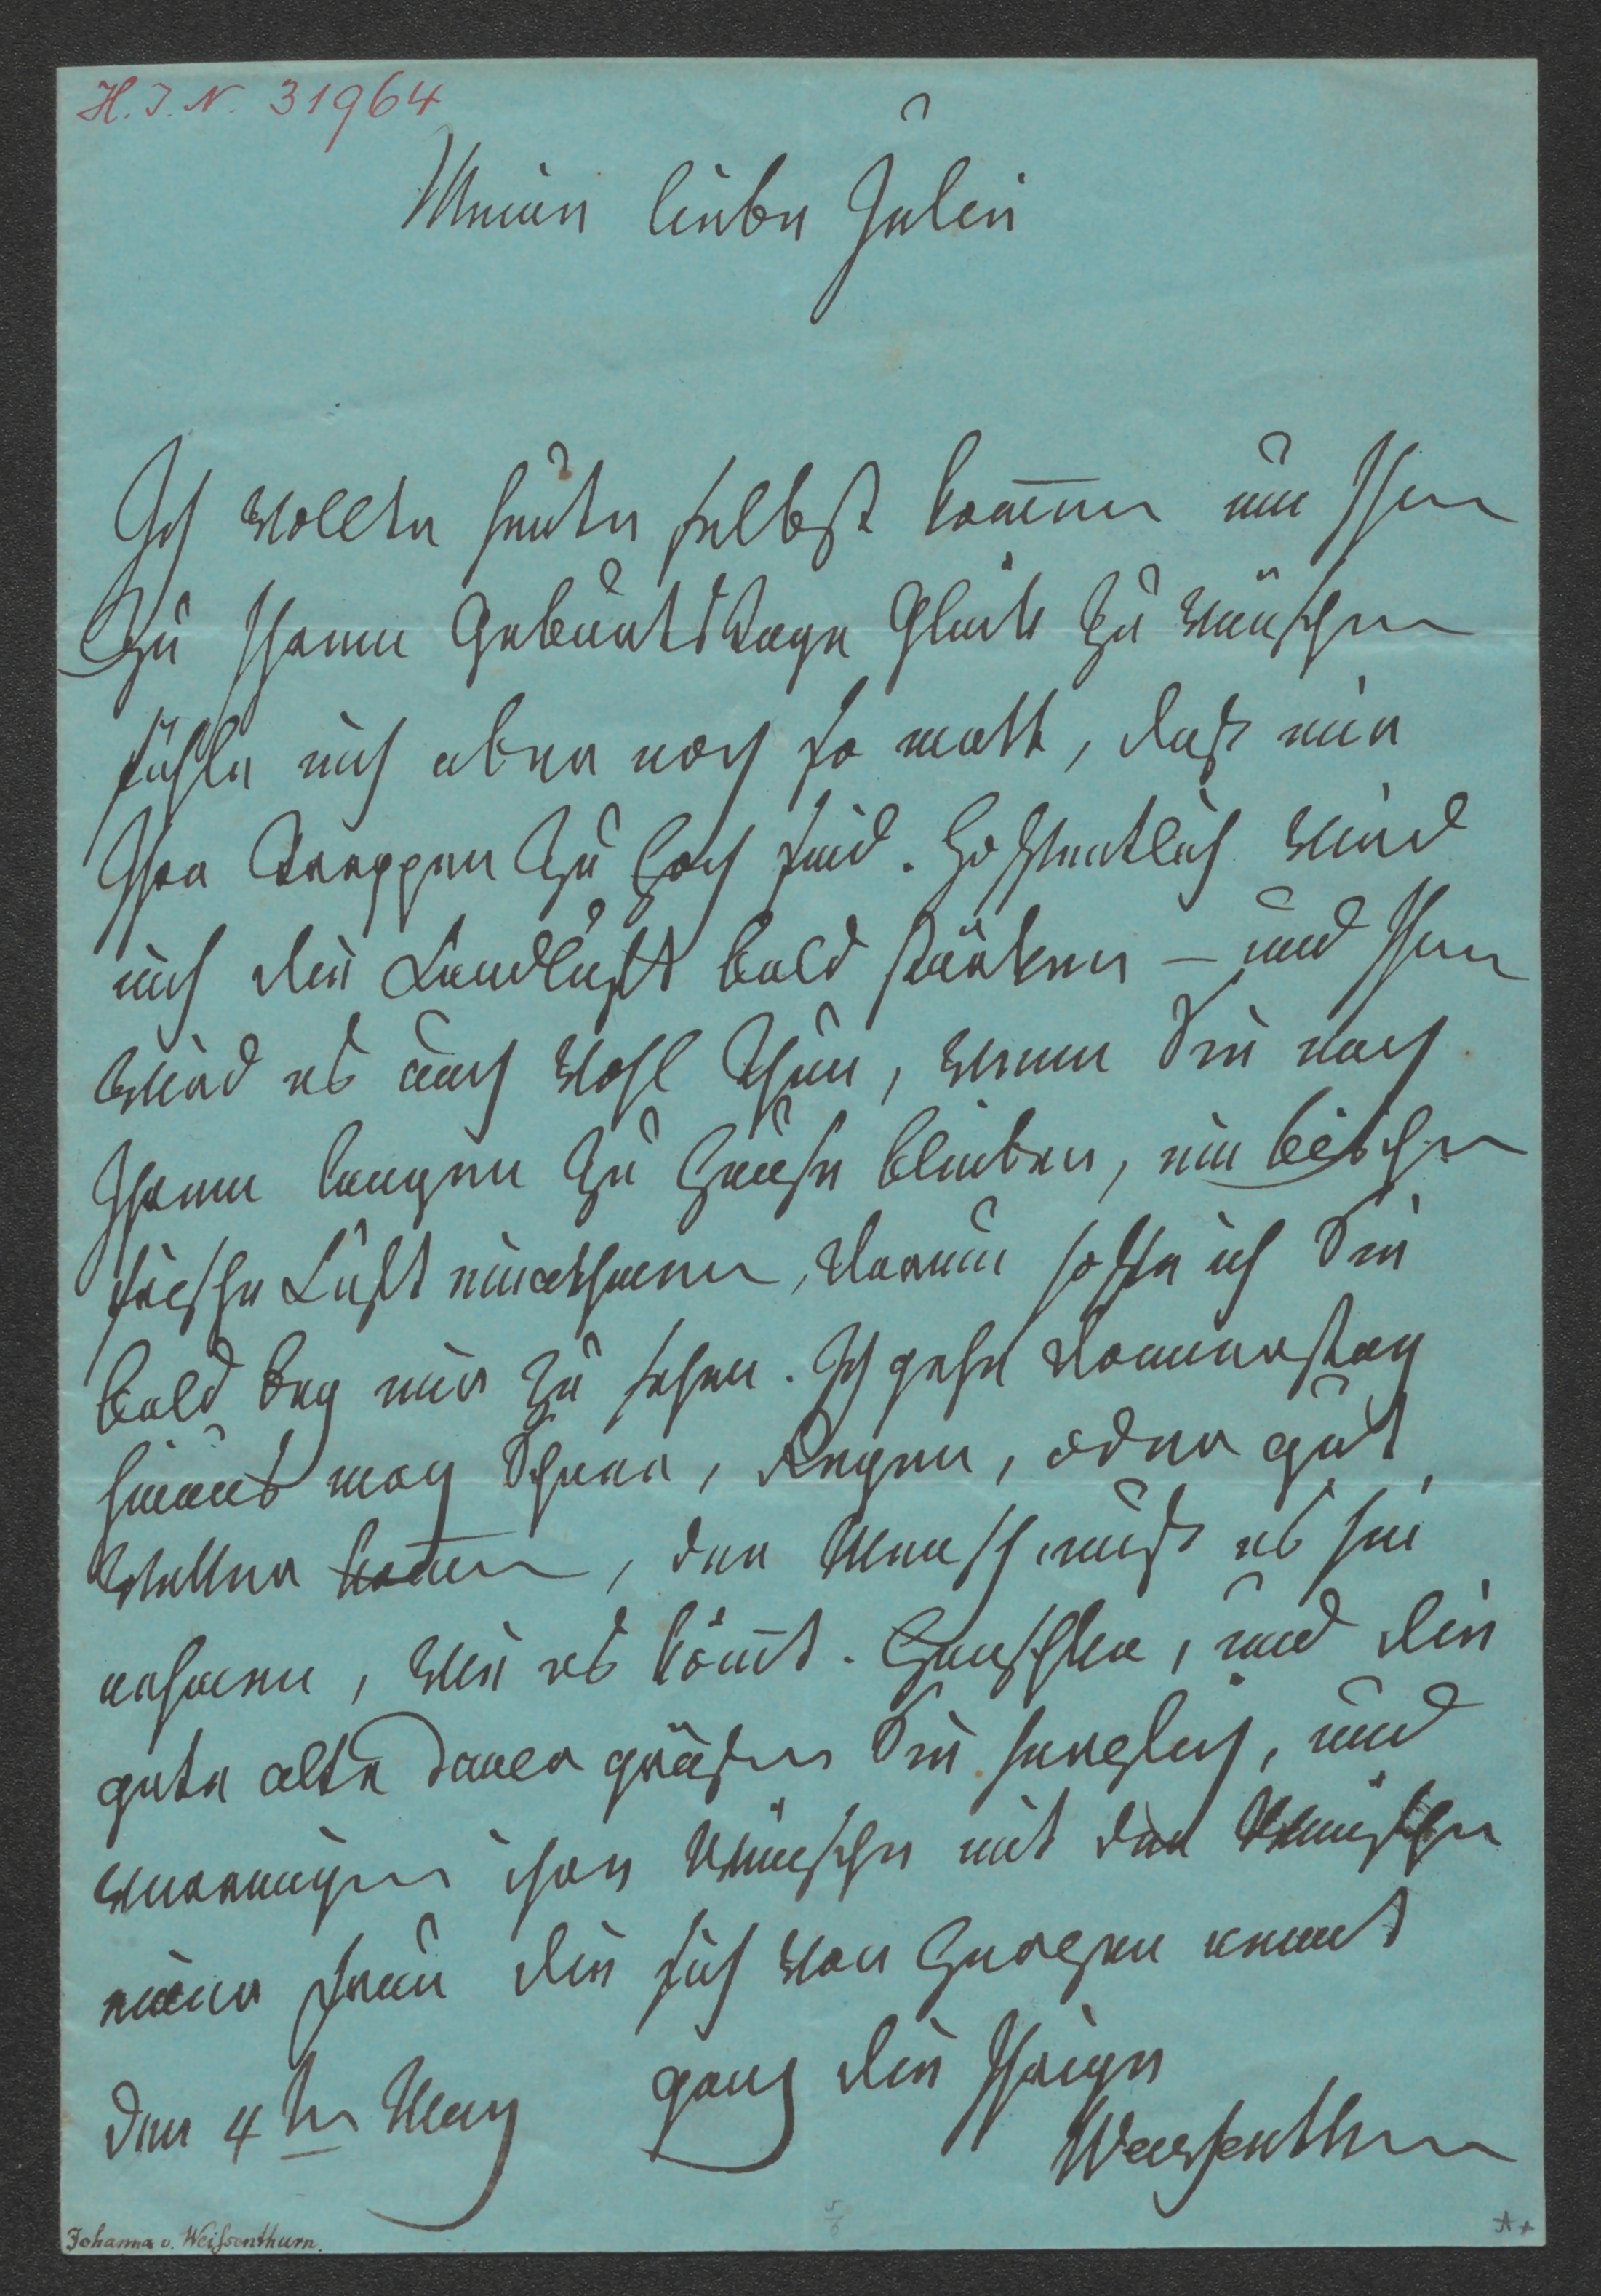 H. I. N. 31964
Meine liebe Julie
Ich wollte heute selbst kommen um Ihnen
zu Ihrem Geburtstage Glück zu wünschen
fühle mich aber noch so matt, daß mir
Ihre Treppen zu hoch sind. Hoffentlich wird
mich die Landluft bald stärken – und Ihnen
wird es auch wohl thun, wenn Sie nach
Ihrem langen zu Hause bleiben, ein bischen
frische Luft einathmen, darum hoffe ich Sie
bald bey mir zu sehen. Ich gehe Donnerstag
hinaus mag Schnee, Regen, oder gut
Wetter kommen, der Mensch muß es hin
nehmen, wie es kömt. und die
gute alte grüßen Sie herzlich, und
vereinigen ihre Wünsche mit den Wünschen
einer Frau die sich von Herzen nennt
ganz die Ihrige
den 4ten May
Weissenthurn
Johanna v. Weißenthurn.